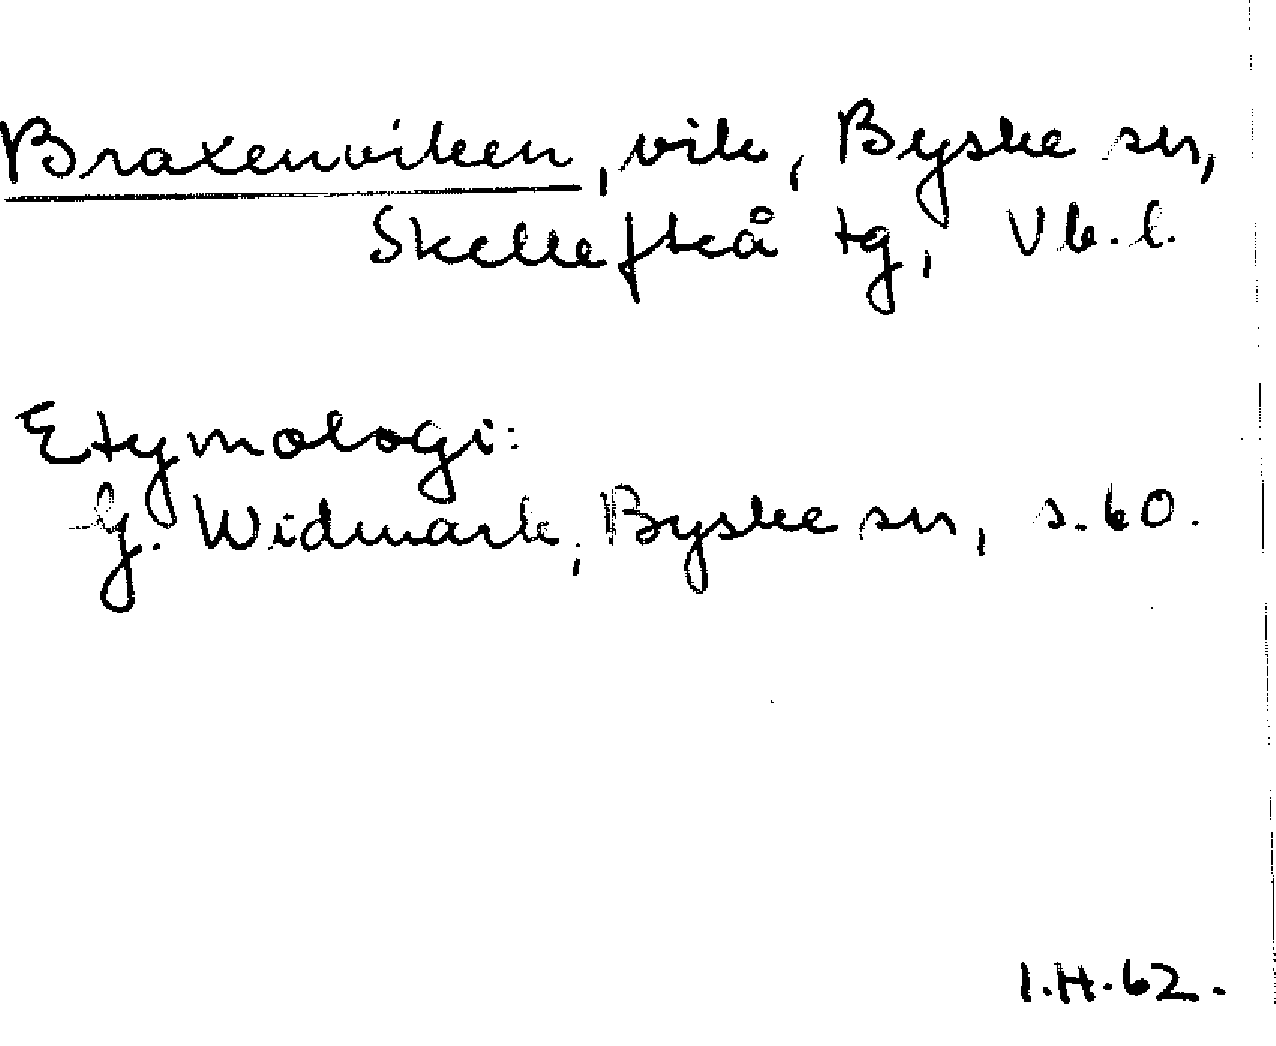 Braxenviken, vik, Byske sn,
Skellefteå tg, Vb. l.
Etymologi:
G. Widmark, Byske sn, s. 60.
I.H. 62.